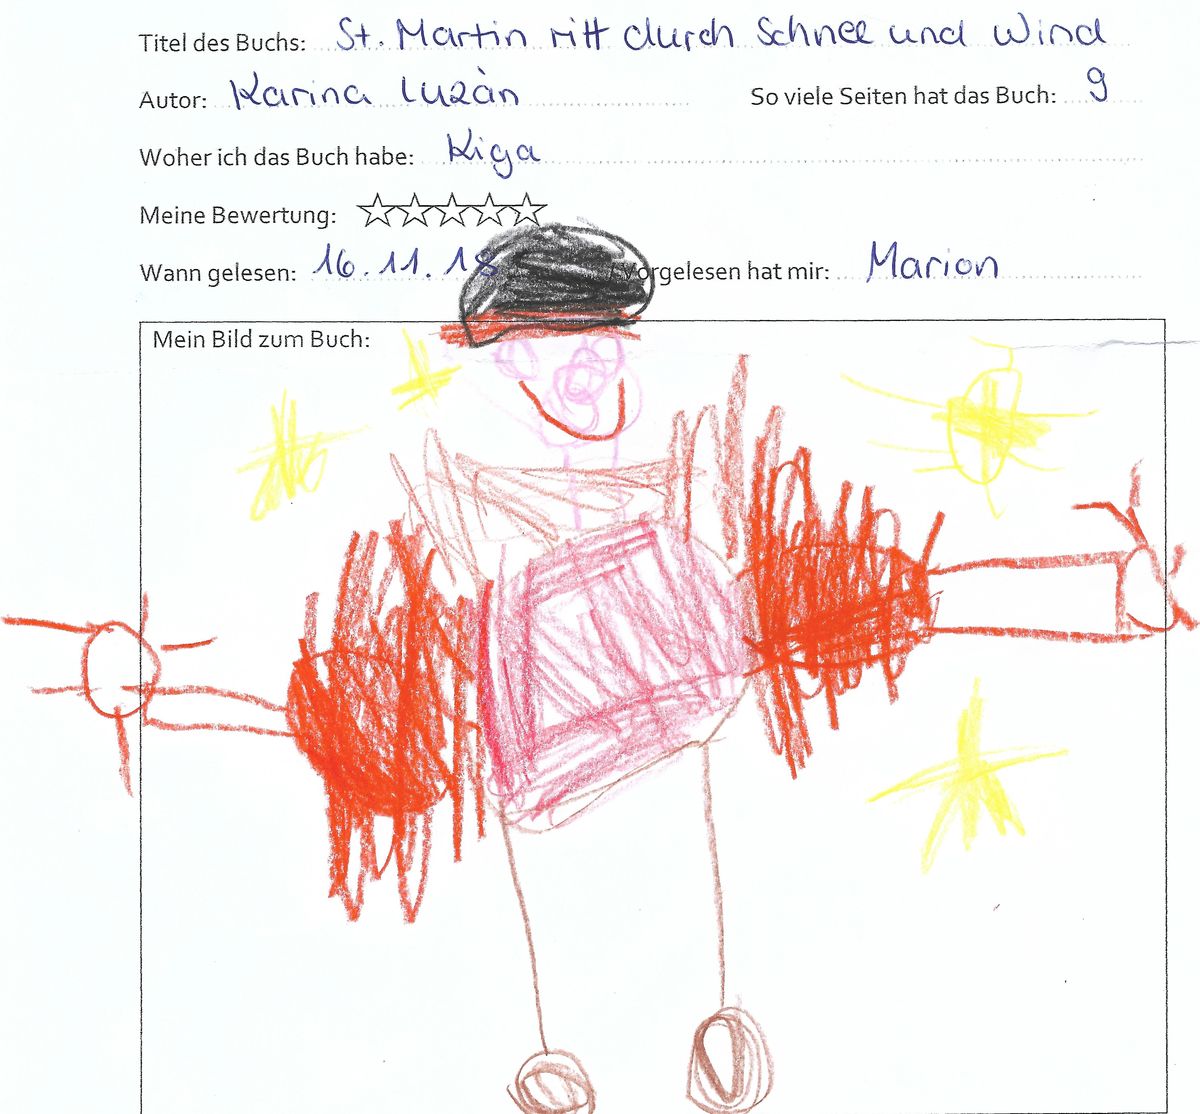 Titel des Buchs: St. Martin ritt durch Schnee und Wind
Autor: Karina Luzàn So viele Seiten hat das Buch: 9
Woher ich das Buch habe: Kiga
Meine Bewertung:
Wann gelesen: 16.11.18 Vorgelesen hat mir: Marion
Mein Bild zum Buch: